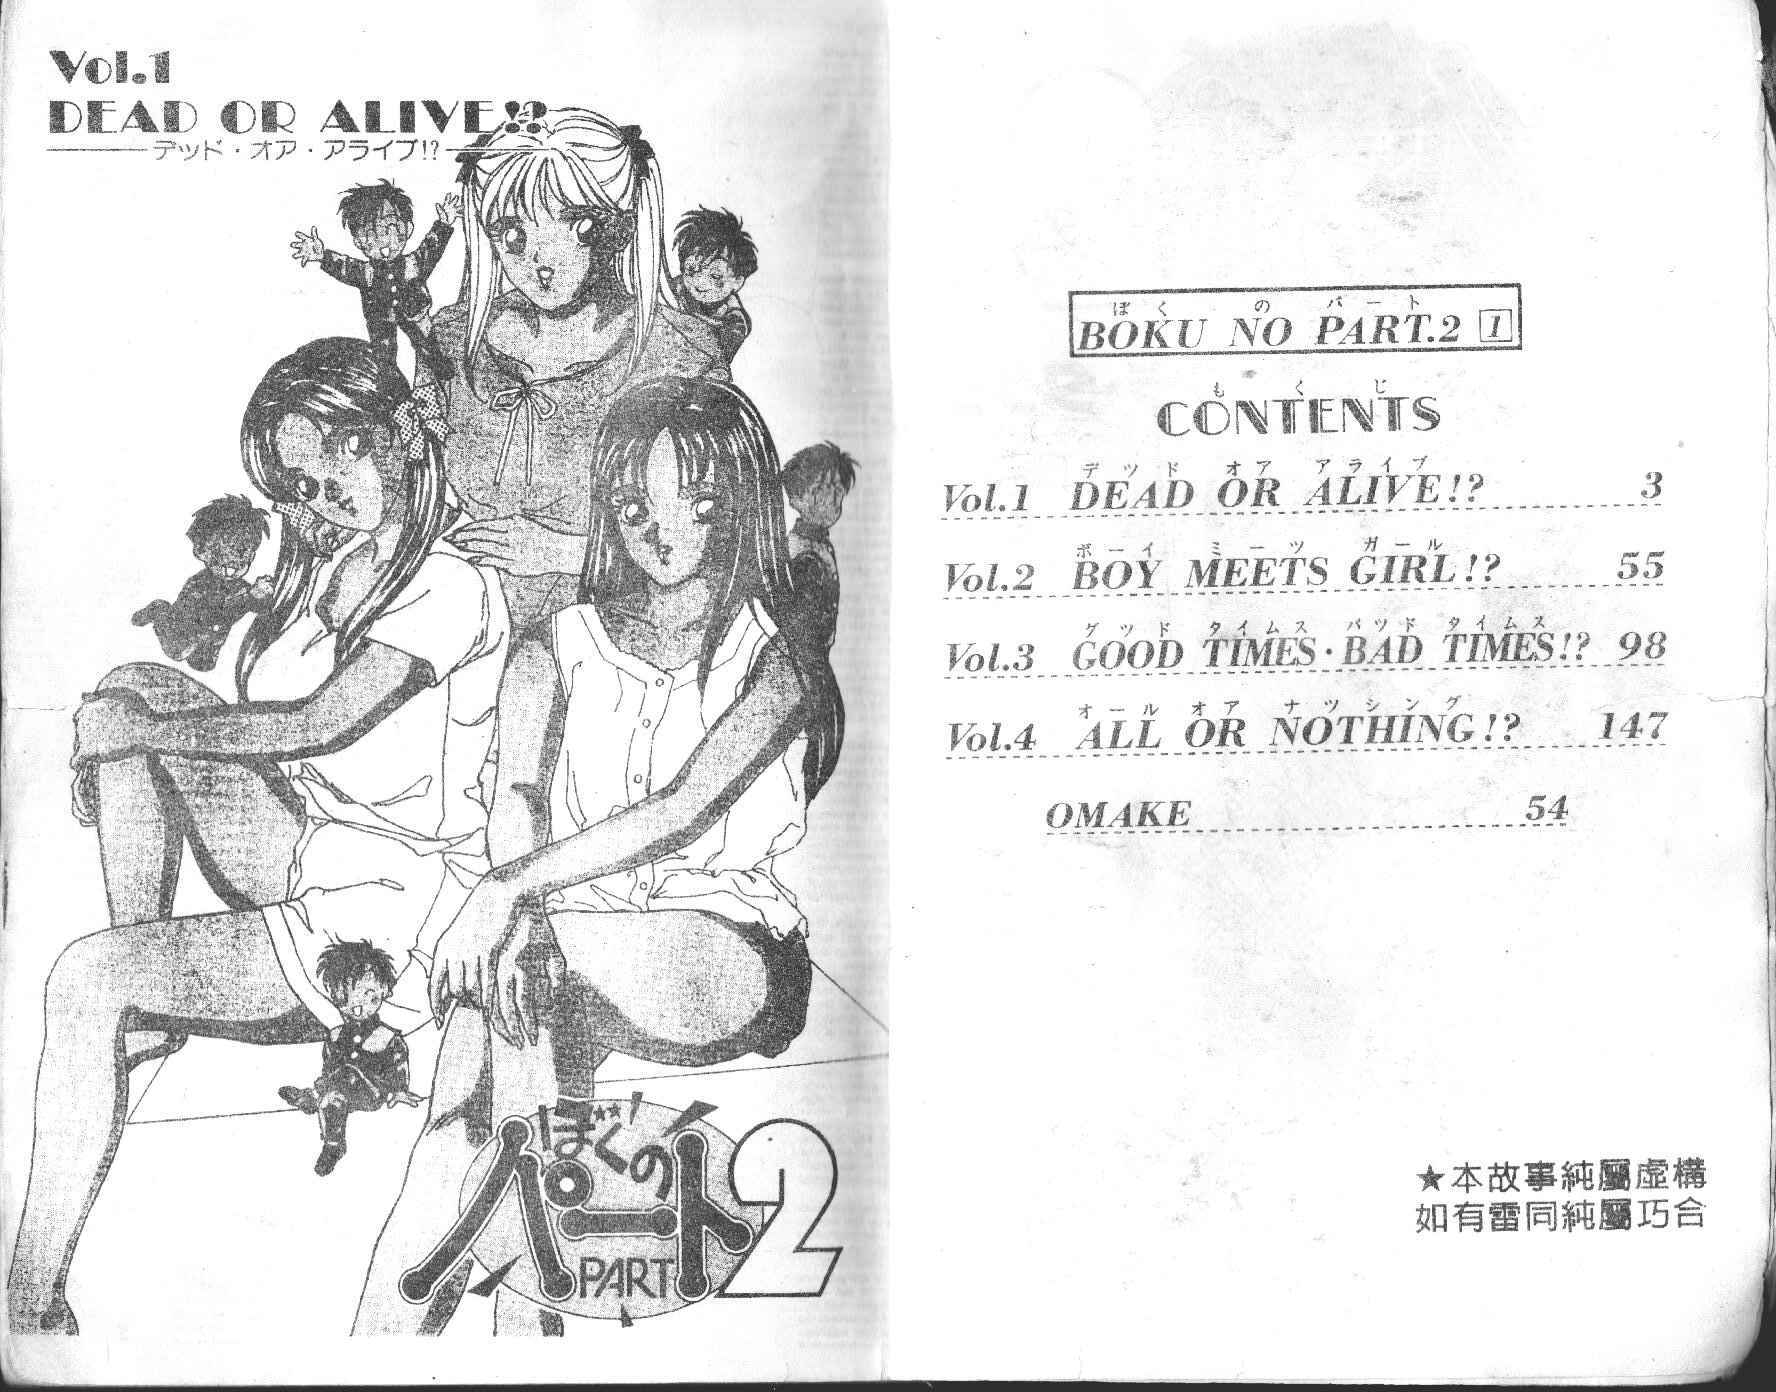 Vol.1
DEAD OR ALIVE!?
デッド・オア・アライブ!?
ぼくの
パート2
PART
ぼく の パート
BOKU NO PART.2 1
もくじ
CONTENTS
デッド オア アライブ
Vol.1 DEAD OR ALIVE!? 3
ボーイ ミーツ ガール
Vol.2 BOY MEETS GIRL!? 55
グッド タイムス バッド タイムス
Vol.3 GOOD TIMES・BAD TIMES!? 98
オール オア ナッシング
Vol.4 ALL OR NOTHING!? 147
OMAKE 54
★本故事純屬虛構
如有雷同純屬巧合